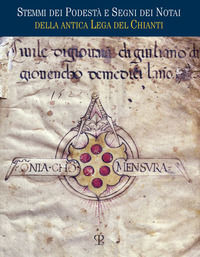 STEMMI DEI PODESTÀ E SEGNI DEI NOTAI
DELLA ANTICA LEGA DEL CHIANTI
ciuile di giouanni di giuliano di
giouencho demedici lano
MENSVRA